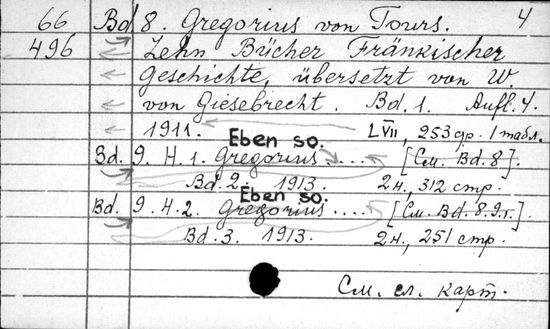 66 Bd 8. Gregorius von Tours. 4
496 Zehn Bücher Fränkischer
Geschichte, übersetzt von W.
von Giesebrecht. Bd. 1. Aufl. 4.
1911. LVII, 253 стр. 1 табл.
Eben so.
Bd. 9. H. 1. Gregorius .... [См. Bd. 8].
Bd. 2. 1913. 2 н., 312 стр.
Eben so.
Bd. 9. H. 2. Gregorius .... [См. Bd. 8. 9.1.]
Bd. 3. 1913. 2 н., 251 стр.
См. сл. карт.